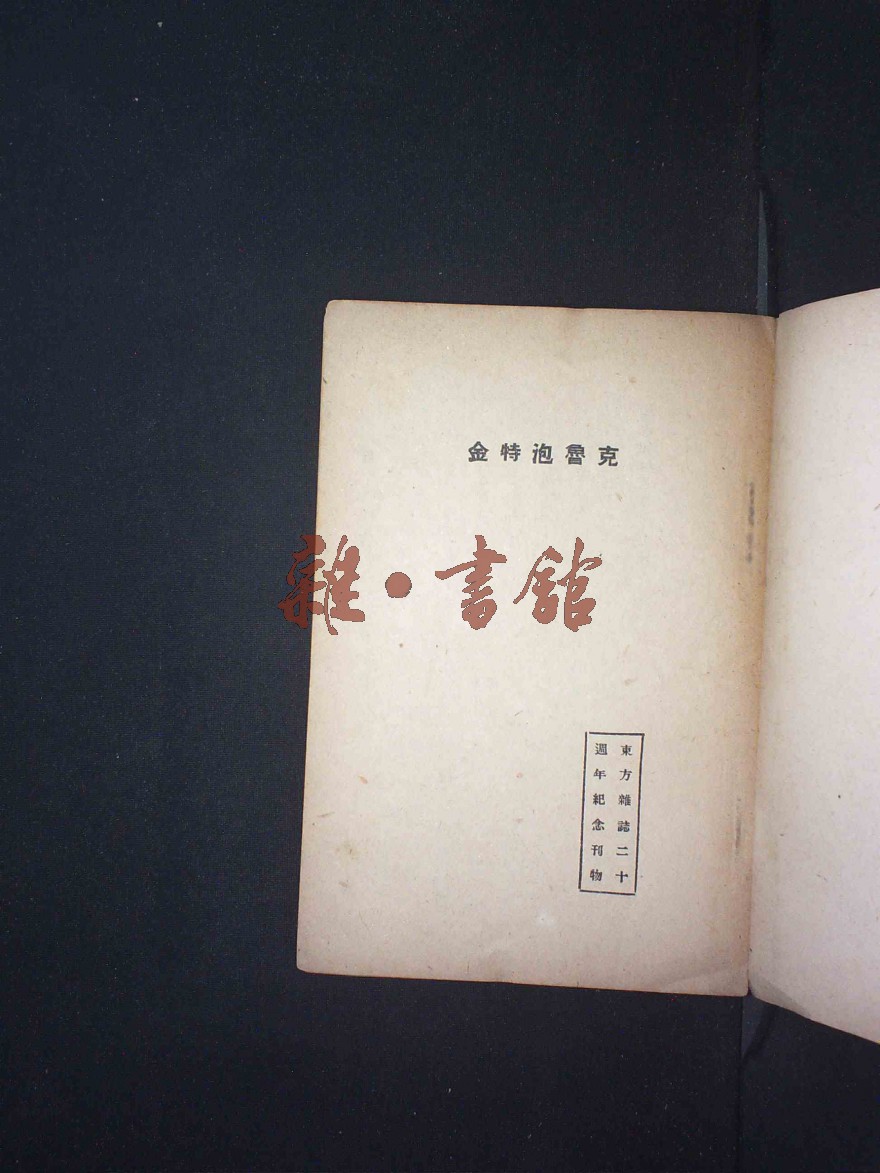 克魯泡特金
雜·書館
東方雜誌二十
週年紀念刊物